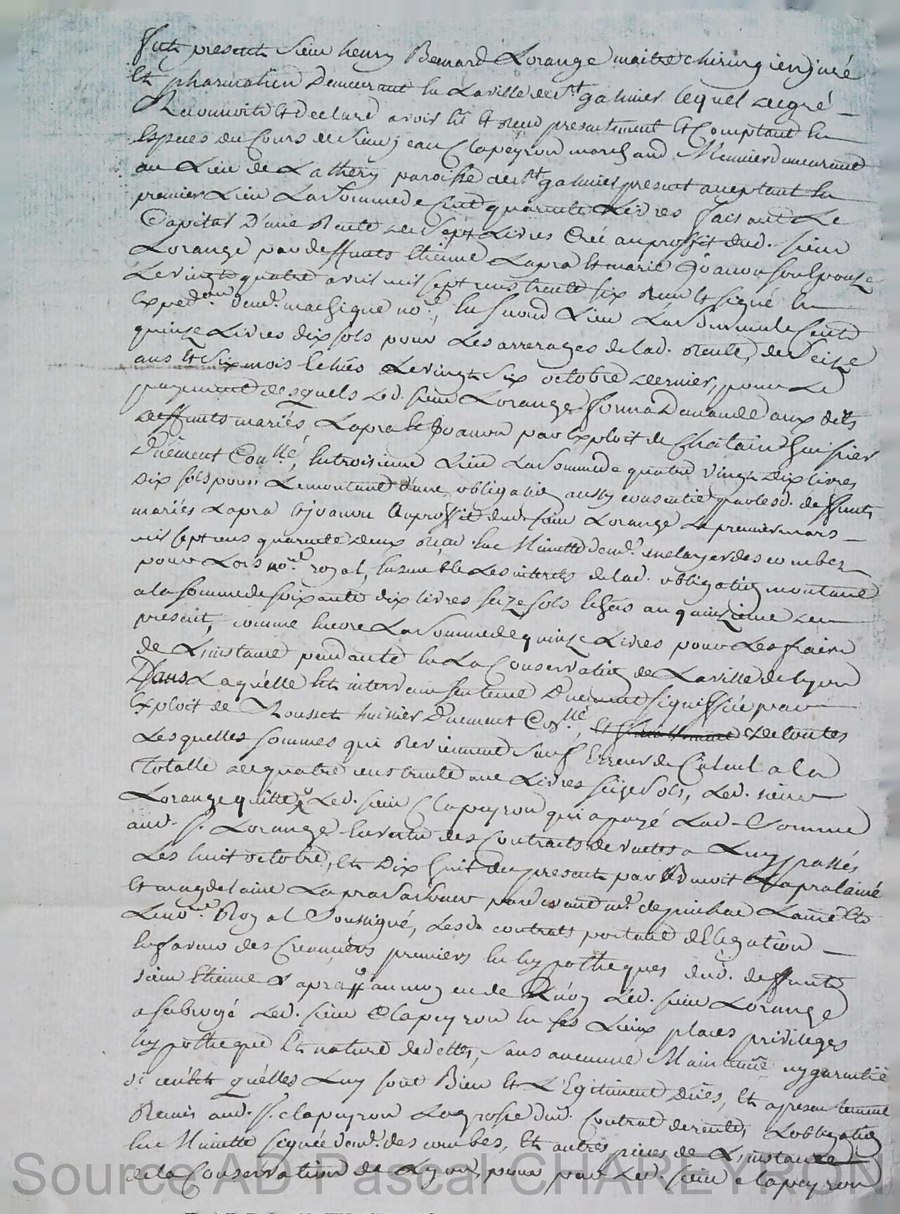 Fut present sieur henry Bernard Lorange maitre chirurgien juré
Et pharmatien Demeurant En La ville de St galmier lequel de gré
Reconnoit et declare avoir Eu et Reçu presentement et Comptant En
Especes du Cours de sieur jean Clapeyron marchand Meunier demeurant
au Lieu de Lathery paroisse de St galmier present acceptant En
premier Lieu La somme de Cent quarante Livres faisant Le
Capital D'une Rente de sept Livres Créé au proffit dud. sieur
Lorange par deffunts Etienne Lapra et marie joanon son Epouse
Le vingt quatre avril mil sept cens trente six Reçu Et signé En
Exped.on dem.e no.re, En second Lieu La somme de Cent
quinze Livres dix sols pour Les arrerages de lad. Rente, de Seize
ans Et Six mois Echus Le vingt Six octobre dernier, pour Le
payement desquels Led. sieur Lorange forma Demande aux dits
deffunts mariés Lapra Et Joanon par Exploit de Chatain huissier
Dûement Con.llé, En troisieme Lieu La somme de quatre vingt dix livres
Dix sols pour Le montant d'une obligation aussy consentie par lesd. deffunts
mariés Lapra Et joanon au proffit dud. sieur Lorange Le premier mars
mil sept cens quarante deux Reçue Sur Minutte des combes
pour Lors no.re royal, Ensemble Les interets de lad. obligation montant
a la somme de soixante dix livres seize sols Echus au quinzieme du
present, comme Encore La somme de quinze Livres pour Les fraix
de L'instance pendante En La Conservation de La ville de Lyon
Dans Laquelle Est intervenu sentence Duement signiffiée par
Exploit de Rousset huissier Duement Con.llé, de toutes
Lesquelles sommes qui Reviennent sauf Erreur de Calcul a la
Totalle de quatre cens trente une Livres seize sols, Led. sieur
Lorange quitte Led. sieur Clapeyron qui a payé Lad. Somme
aud. S. Lorange En vertu des Contracts de ventes a Luy passés
Les huit octobre, Et Dix huit du present par Benoit Lapra lainé
Et magdelaine Lapra par devant
Le no.re Royal Soussigné, Lesd. contrats portant délégation
En faveur des Creanciers premiers En hypotheques dud. deffunt
sieur Etienne Lapra, au moyen de Quoy Led. sieur Lorange
a subrogé Led. sieur Clapeyron En ses Lieux places privileges
hypotheque Et nature de dettes, sans aucune Maintenüe ny garantie
si ce n'Est qu'elles Luy sont Bien Et L'Egitiment Dües, Et a presentement
Remis aud. S. Clapeyron La grosse dud. Contrat de rente, L'obligation
Sur Minutte signée des combes, Et autres pieces de L'instance
de la Conservation de Lyon, pour par Led. sieur Clapeyron
Source AD Pascal CHAREYRON